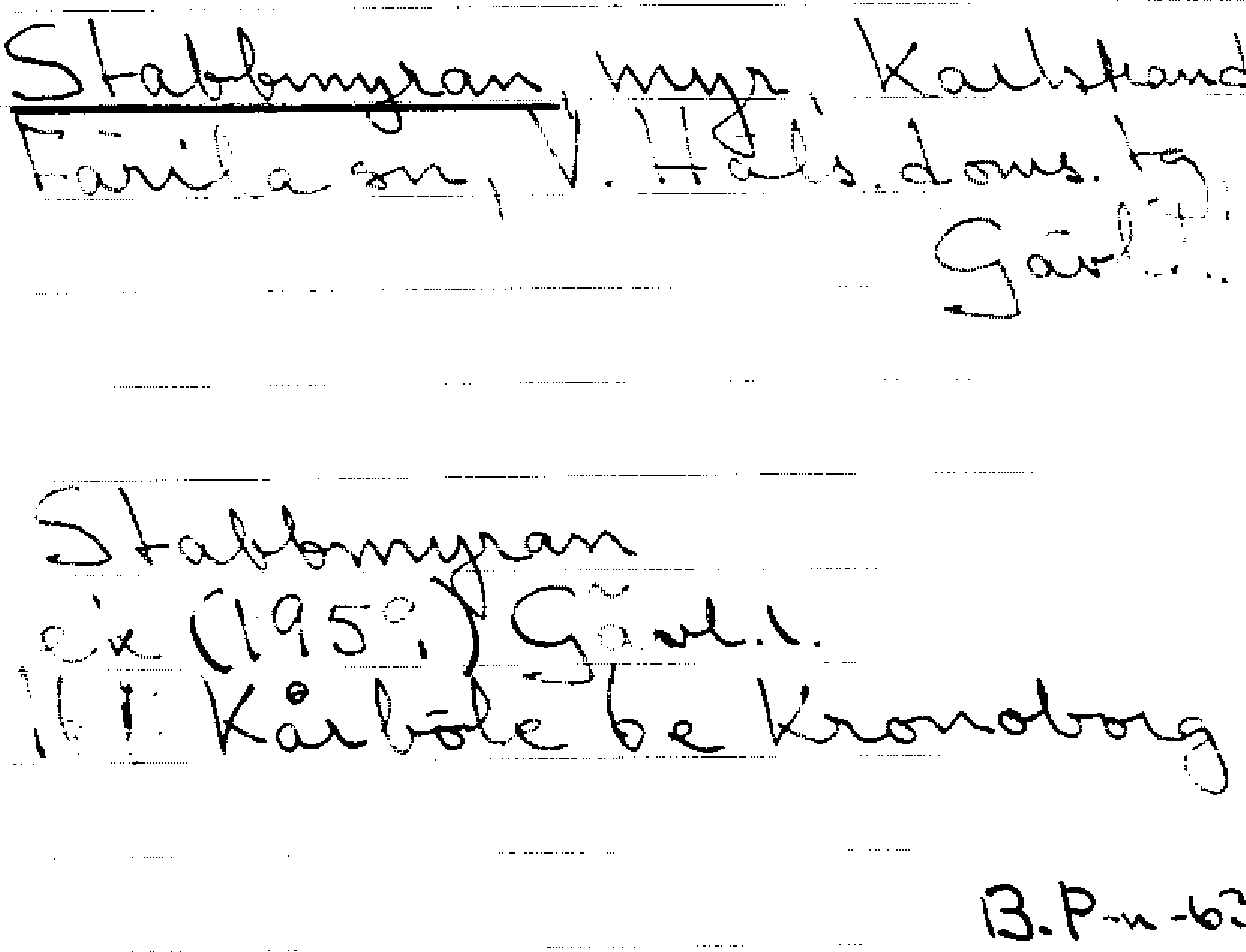 Stabbmyran, myr, Karlstrand
Färila sn, V. Häls. doms. tg
Gävl.
Stabbmyran
ek (1959) Gävl. l.
16 Kårböle 6e Kronoborg
B. P-n -63